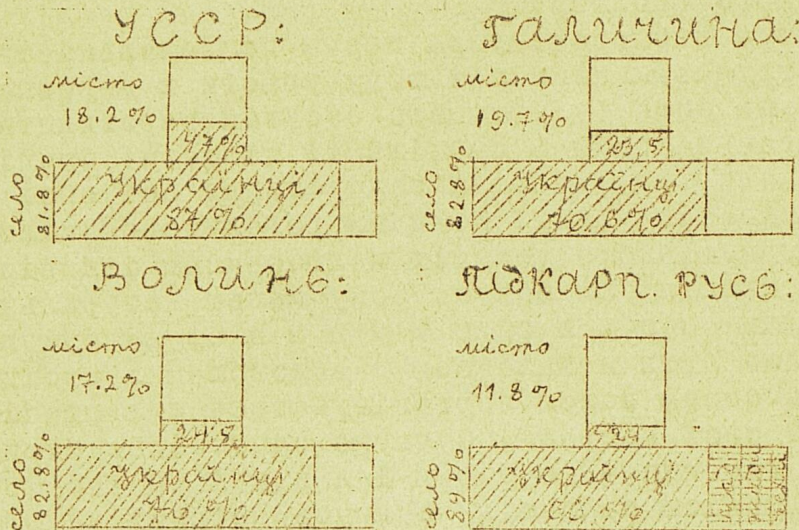 УССР:
місто
18.2%
47%
село
81.8%
Українці
87%
Галичина:
місто
19.7%
23,5
село
82.8%
Українці
70,6%
Волинь:
місто
17.2%
24,5
село
82.8%
Українці
76%
Підкарп. Русь:
місто
11.8%
село
89%
Українці